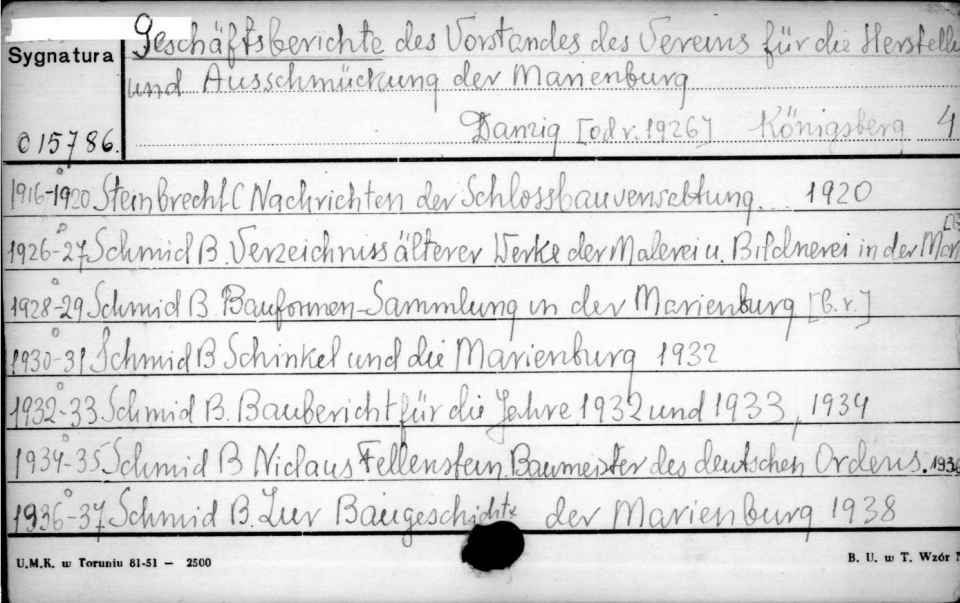 Geschäftsberichte des Vorstandes des Vereins für die Herstell
Sygnatura
und Ausschmückung der Marienburg
Danzig [od r. 1926] Königsberg 4
C 15786.
1916-1920 Steinbrecht C Nachrichten der Schlossbauverwaltung. 1920
1926-27 Schmid B. Verzeichniss älterer Werke der Malerei u. Bildnerei in der Mar
1928-29 Schmid B. Bauformen-Sammlung in der Marienburg [b.r.]
1930-31 Schmid B Schinkel und die Marienburg 1932
1932-33 Schmid B. Baubericht für die Jahre 1932 und 1933, 1934
1934-35 Schmid B Niclaus Fellenstein Baumeister des deutschen Ordens. 193
1936-37 Schmid B. Zur Baugeschichte der Marienburg 1938
U.M.K. w Toruniu 81-51 — 2500
B. U. w T. Wzór